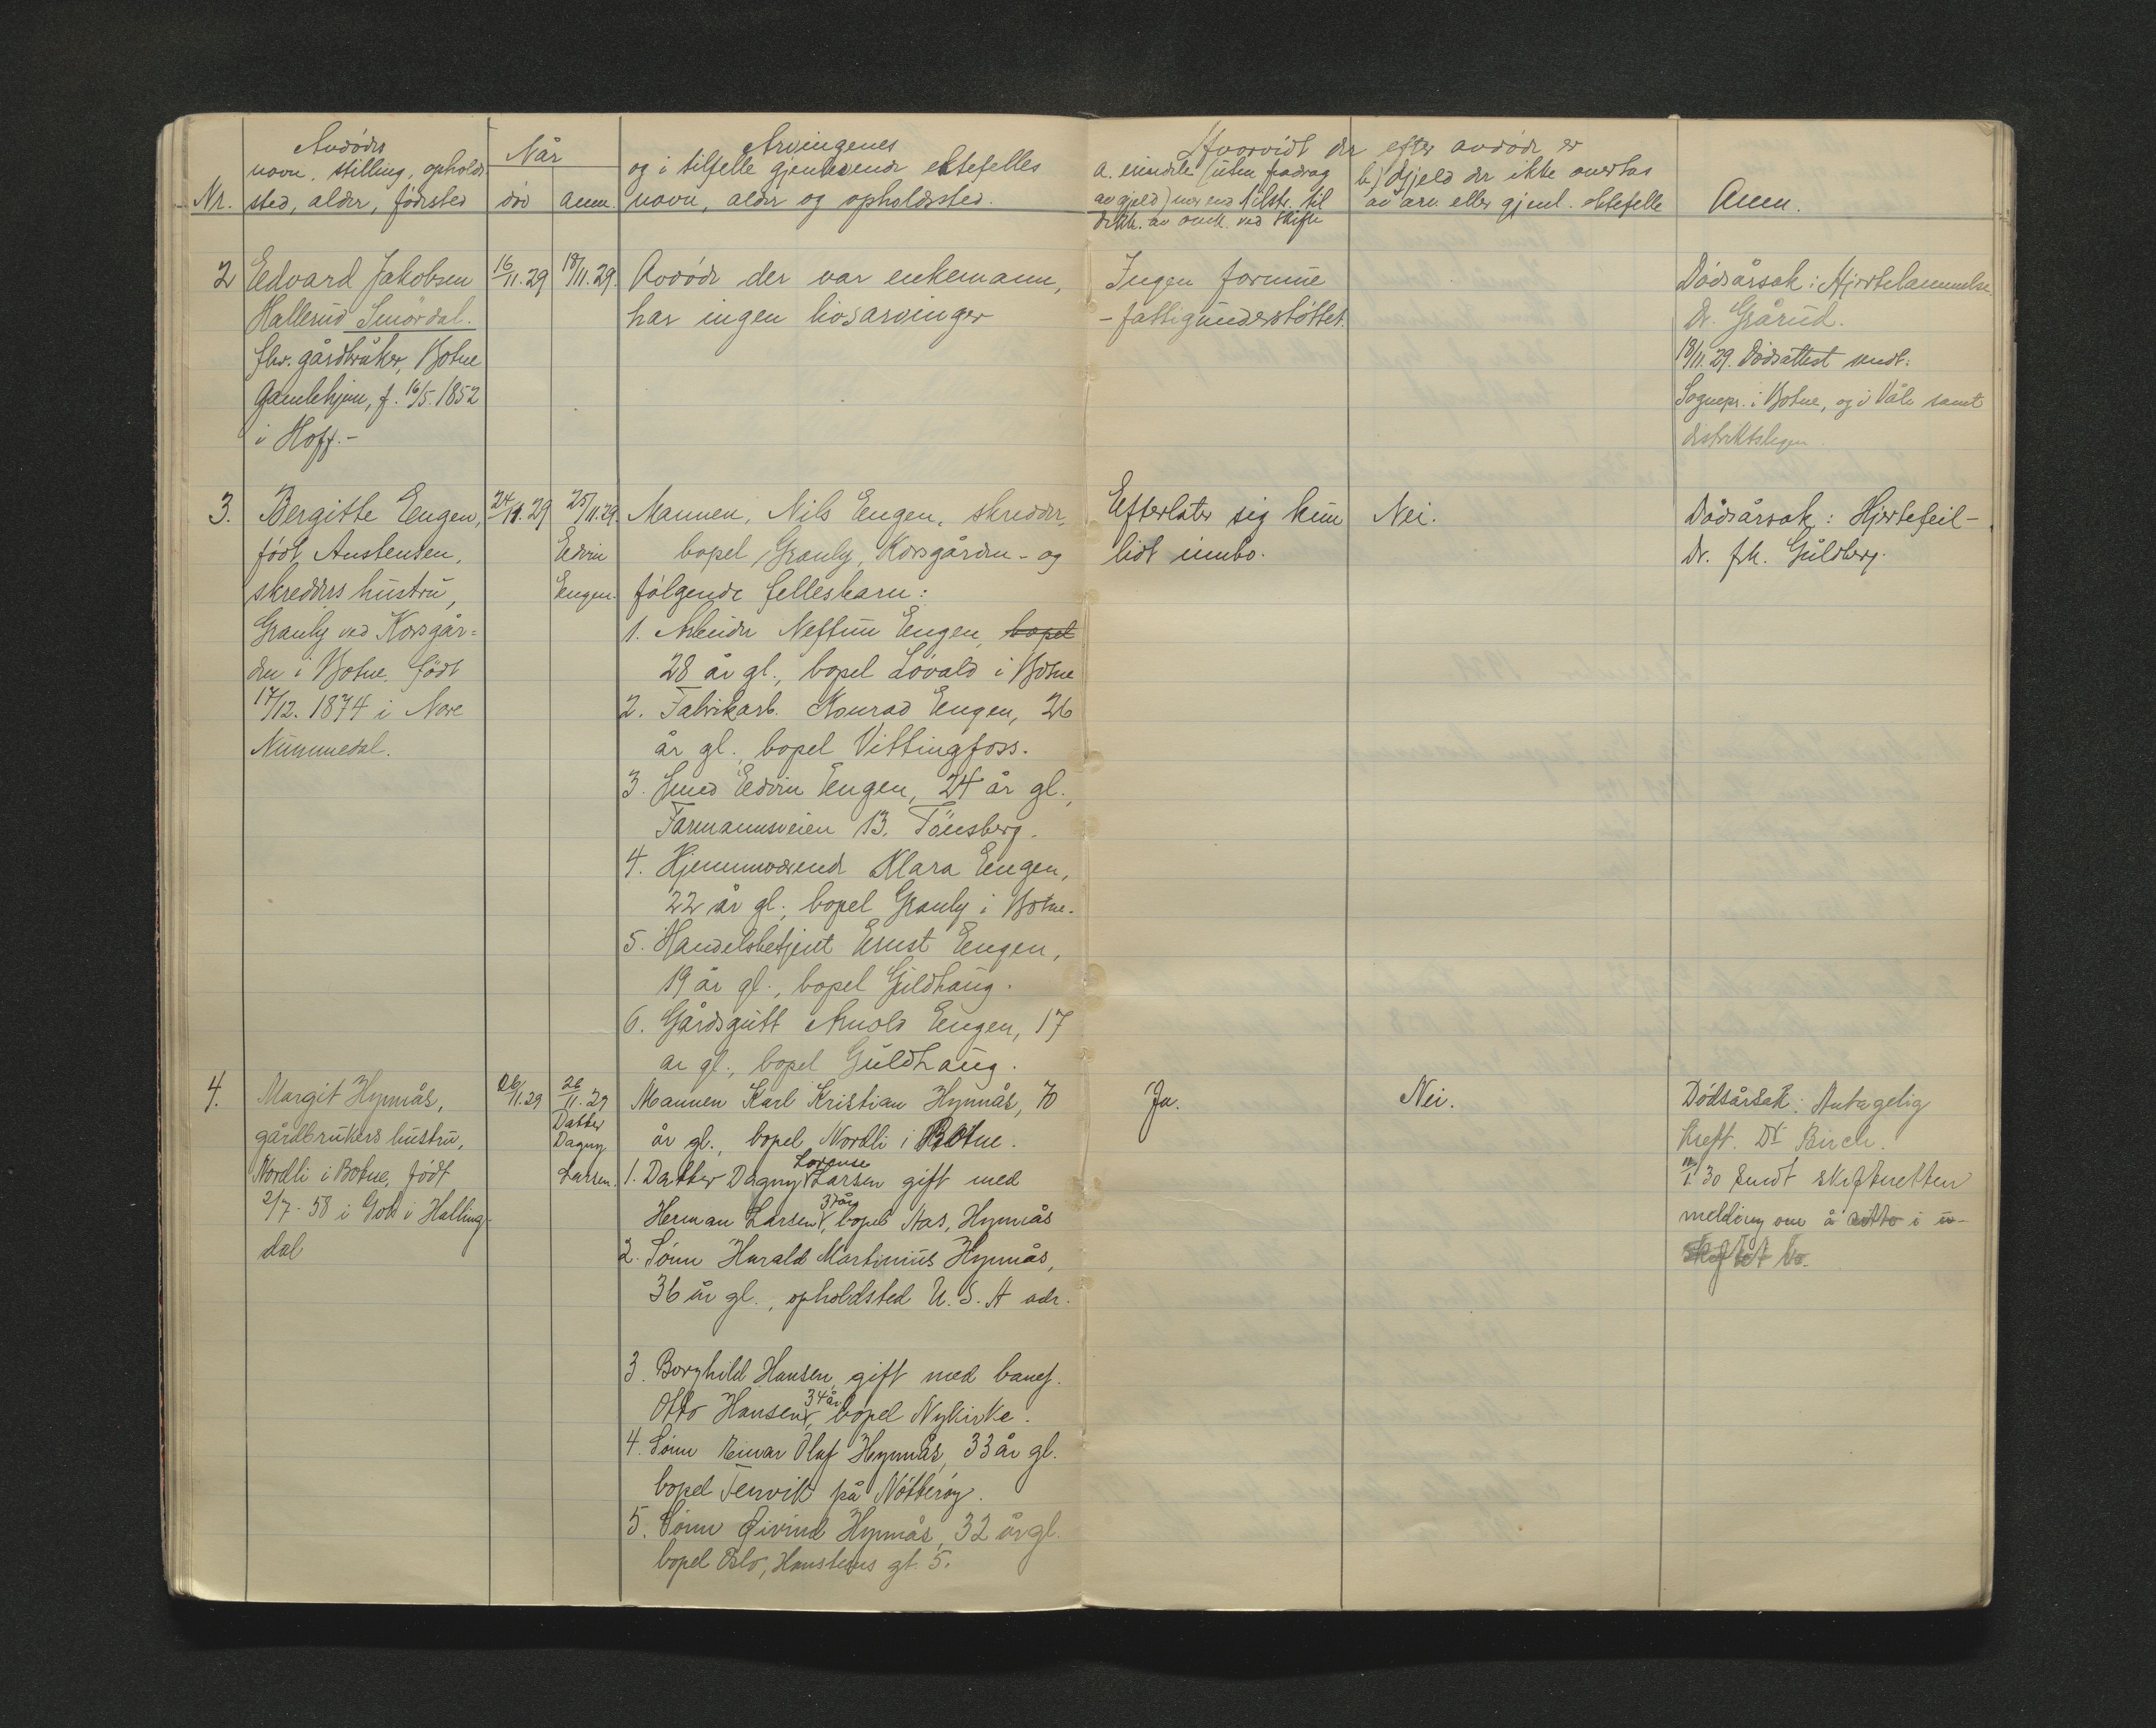 Avdødes
navn, stilling, opholds-
Nr. sted, alder, fødested
Når
død anm.
Arvingenes
og i tilfelle gjenlevende ektefelles
navn, alder og opholdssted.
Hvorvidt der efter avdøde er
a. eiendele (uten fradrag
av gjeld) mer enn tilstr. til
dekn. av omk. ved skifte
b) Gjeld der ikke overtas
av arv. eller gjenl. ektefelle
Anm.
2 Edvard Jakobsen
Hallerud Smørdal.
fhv. gårdbruker, Botne
Gamlehjem, f. 16/5. 1852
i Hoff.-
16/11.29
18/11.29.
Avdøde der var enkemann,
har ingen livsarvinger
Ingen formue
- fattigunderstøttet.
Dødsårsak: Hjertelammelse
Dr. Gårud.
18/11.29. Dødsattest sendt:
Sognepr. i Botne, og i Våle samt
distriktslegen.
3. Bergitte Engen,
født Anstensen,
skredders hustru,
Granly ved Korsgår=
den i Botne, født
17/12. 1874 i Nore
Nummedal.
24/11.29
25/11.29.
Edvin
Engen.
Mannen, Nils Engen, skredder,
bopel Granly, Korsgården - og
følgende fellesbarn:
1. Arbeider Neftun Engen, bopel
28 år gl., bopel Løvald i Botne
2. Fabrikarb. Konrad Engen, 26
år gl., bopel Vittingfoss.
3. Smed Edvin Engen, 24 år gl.,
Farmannsveien 13. Tønsberg.
4. Hjemmeværende Klara Engen,
22 år gl., bopel Granly i Botne.
5. Handelsbetjent Ernst Engen,
19 år gl., bopel Guldhaug.
6. Gårdsgutt Arnold Engen, 17
år gl., bopel Guldhaug.
Efterlater sig kun
lidt innbo.
Nei.
Dødsårsak: Hjertefeil -
Dr. frk. Guldberg.
4. Margit Hynnås,
gårdbrukers hustru,
Nordli i Botne, født
2/7- 58 i Gol i Halling-
dal
26/11.29
26/11.29
Datter
Dagny
Larsen.
Mannen Karl Kristian Hynnås, 70
år gl., bopel Nordli i Botne.
1. Datter Dagny Lovense Larsen gift med
Herman Larsen, 37 år, bopel Aas, Hynnås
2. Sønn Harald Martinius Hynnås,
36 år gl., opholdsted U.S.A adr.
3. Borghild Hansen, gift med banef.
Otto Hansen, 34 år, bopel Nykirke.
4. Sønn Einar Oluf Hynnås, 33 år gl.
bopel Tenvik på Nøtterøy.
5. Sønn Øivind Hynnås, 32 år gl.
bopel Oslo, Hansteens gt. 5.
Ja.
Nei.
Dødsårsak: Antagelig
kreft. Dr. Birch.
30 sendt skifteretten
melding om å sitte i u-
skiftet bo.